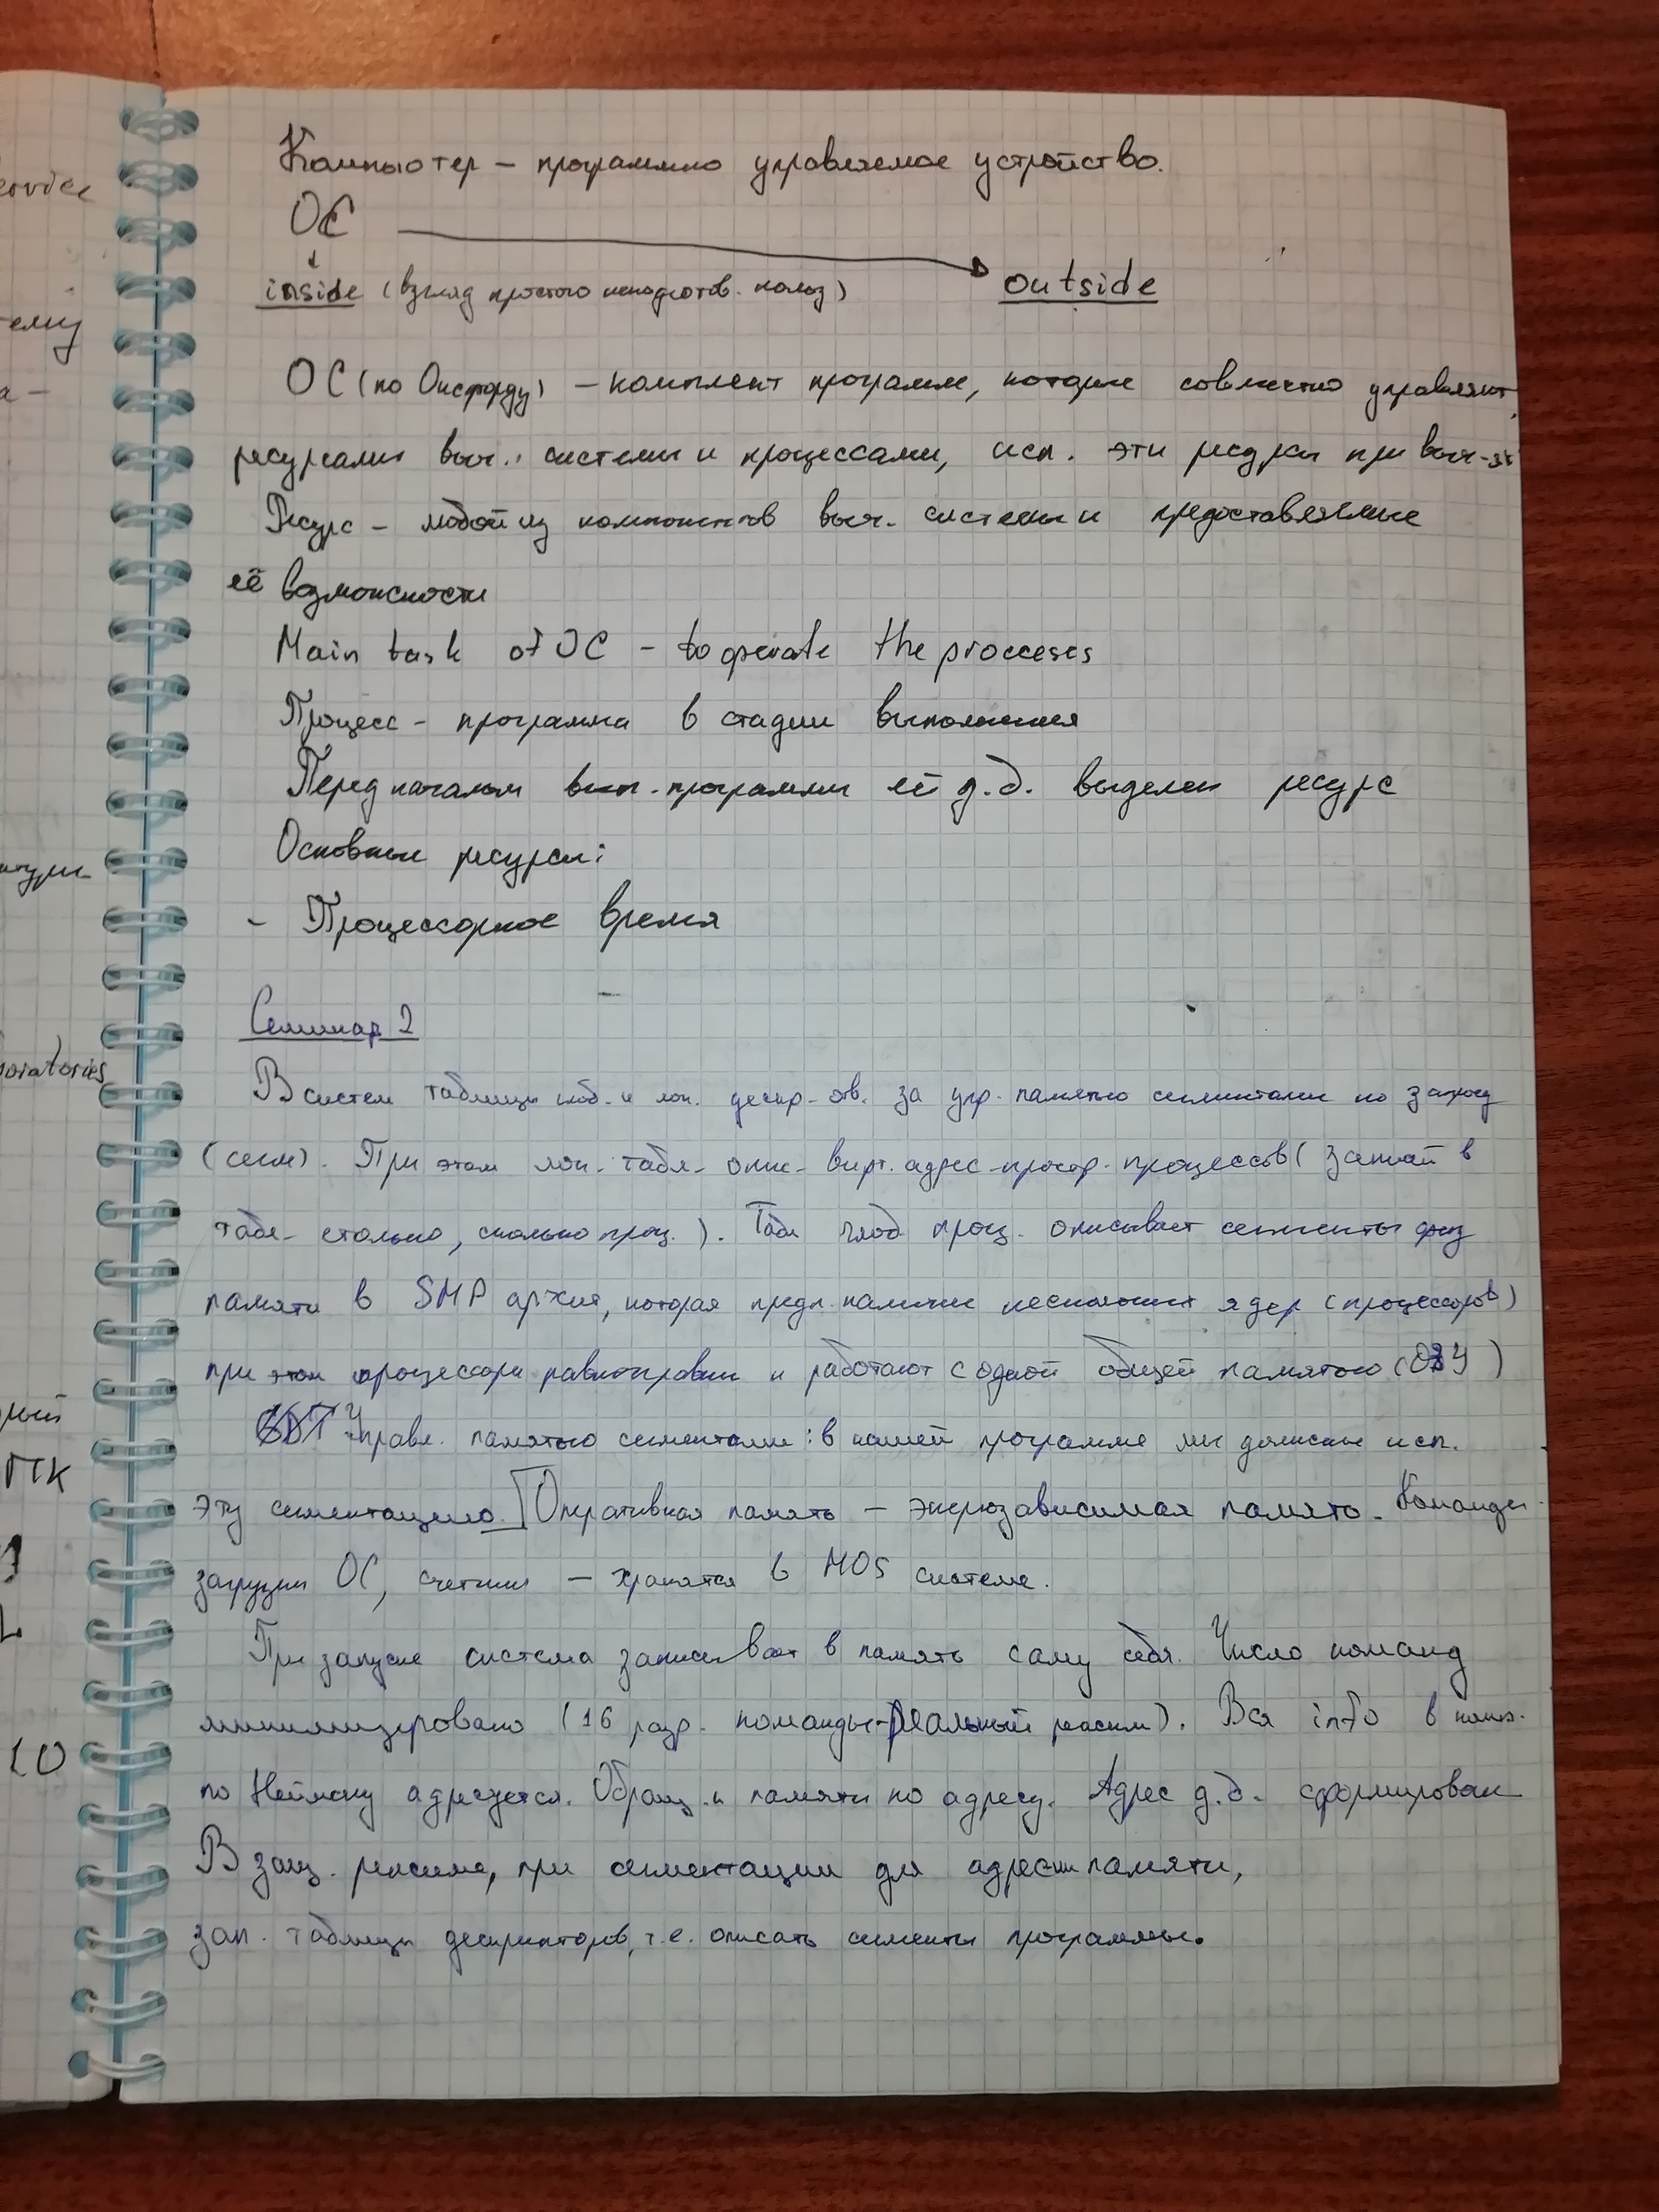 Компьютер – программно управляемое устройство.
ОС
inside (взгляд простого неподготов. польз) outside
ОС (по Оксфорду) – комплект программ, которые совместно управляют
ресурсами выч. системы и процессами, исп. эти ресурсы при выч-ях
Ресурс – любой из компонентов выч. системы и предоставляемые
её возможности
Main task of ОС – to operate the procceses
Процесс – программа в стадии выполнения
Перед началом вып. программы ей д.б. выделен ресурс
Основные ресурсы:
- Процессорное время
Семинар 2
В систем таблицы глоб. и лок. дескр. отв. за упр. памятью сегментами по запросу
(сегм). При этом лок. табл. опис. вирт. адрес. простр. процессов (записей в
табл. столько, сколько проц.). Табл глоб. проц. описывает сегменты физ
памяти в SMP архит, которая предп. наличие нескольких ядер (процессоров)
при этом процессоры равноправны и работают с одной общей памятью (ОЗУ)
Управл. памятью сегментами: в нашей программе мы должны исп.
эту сегментацию. Оперативная память – энергозависимая память. Команды
загрузки ОС, счетчики – хранятся в MOS системе.
При запуске система записывает в память саму себя. Число команд
минимизировано (16 разр. команды-реальный режим). Вся info в комп.
по Нейману адресуется. Обращ. к памяти по адресу. Адрес д.б. сформирован
В защ. режиме, при сегментации для адресации памяти,
зап. таблицы дескрипторов, т.е. описать сегменты программы.
ervice
ему
а-
oratories
рый
ПК
10